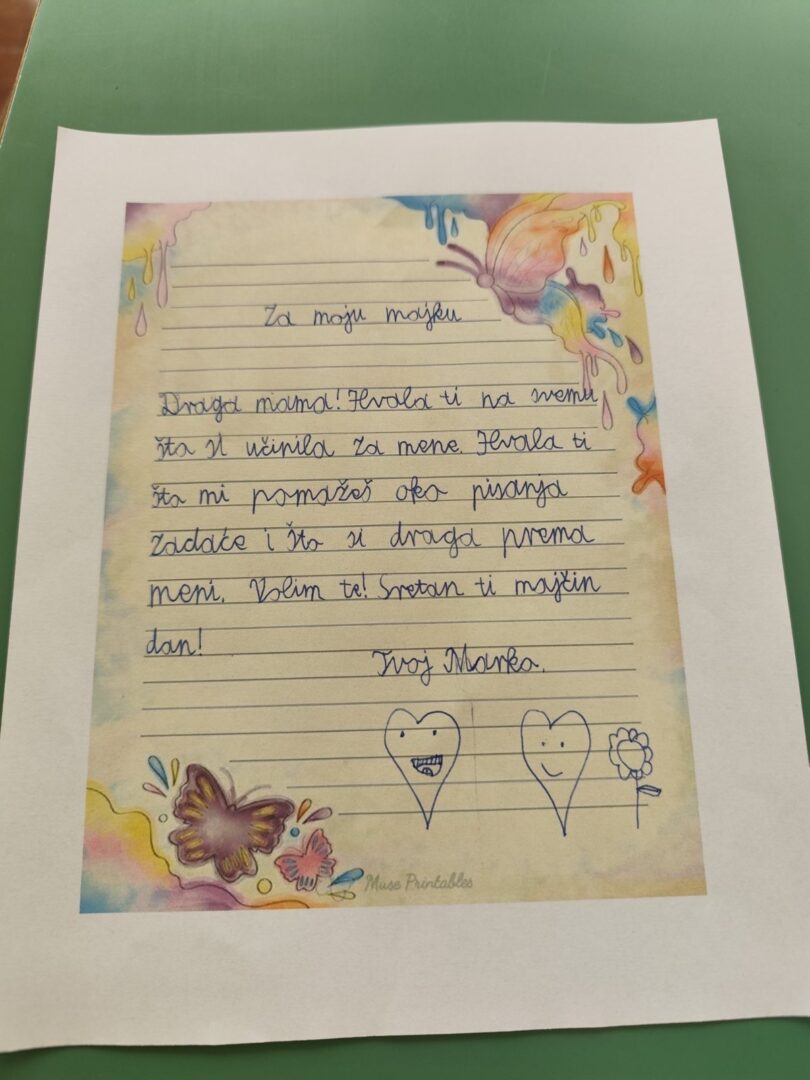 Za moju majku
Draga mama! Hvala ti na svemu
što si učinila za mene. Hvala ti
što mi pomažeš oko pisanja
zadaće i što si draga prema
meni. Volim te! Sretan ti majčin
dan!
Tvoj Marko.
Muse Printables